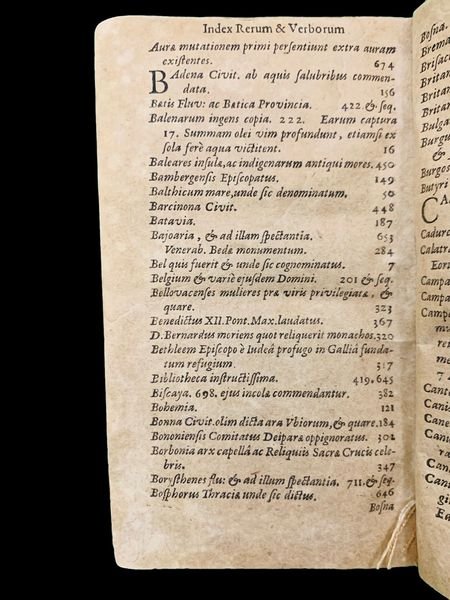 Index Rerum & Verborum
Auræ mutationem primi persentiunt extra auram
existentes. 674
BAdena Civit. ab aquis salubribus commen-
data. 156
Bætis Fluv: ac Bætica Provincia. 422 & seq.
Balenarum ingens copia. 222. Earum captura
17. Summam olei vim profundunt, etiamsi ex
sola ferè aqua victitent. 16
Baleares insulæ, ac indigenarum antiqui mores. 450
Bambergensis Episcopatus. 149
Balthicum mare, unde sic denominatum. 50
Barcinona Civit. 448
Batavia. 187
Bajoaria, & ad illam spectantia. 653
Venerab. Bedæ monumentum. 284
Bel quis fuerit & unde sic cognominatus. 7
Belgium & variè ejusdem Domini. 201 & seq.
Bellovacenses mulieres præ viris privilegiatæ, &
quare. 323
Benedictus XII. Pont. Max. laudatus. 367
D. Bernardus moriens quot reliquerit monachos. 320
Bethleem Episcopo è Iudeâ profugo in Galliâ funda-
tum refugium. 317
Bibliotheca instructissima. 419. 645
Biscaya. 698. ejus incolæ commendantur. 382
Bohemia. 121
Bonna Civit. olim dicta ara Vbiorum, & quare. 184
Bononiensis Comitatus Deiparæ oppignoratus. 302
Borbonia arx capellâ ac Reliquiis Sacræ Crucis cele-
bris. 347
Borysthenes flu: & ad illum spectantia. 711. & seq.
Bosphorus Thraciæ unde sic dictus. 646
Bosna
Bosna.
Brema
Brisac
Britan
Britan
Britan
Bulga
Burgu
&
Burgos
Butyri
CA
Cadurc
Calatra
Eor
Campa
Campa
Campo
mu
me
7
Canto
Cani
Cane
Cane
ra
Cani
Cani
gi
Ea